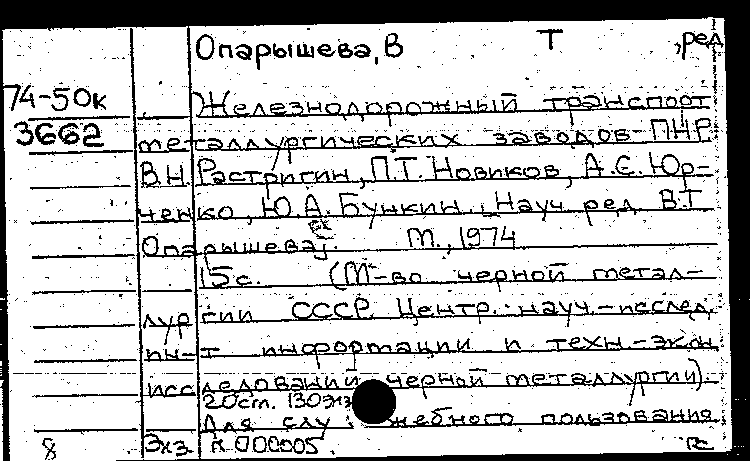 Опарышева, В Т , ред
74-50к Железнодорожный транспорт
3662 металлургических заводов ПНР
В.Н. Растригин, П.Т. Новиков, А.С. Юр-
ченко, Ю.А. Бункин. Науч ред В.Т
Опарышева. М., 1974
15с. (М-во черной метал-
лургии СССР. Центр. науч.-исслед.
ин-т информации и техн-экон
исследований черной металлургии).
20см. 130экз
Для служебного пользования
8 Экз. № 000005. РС